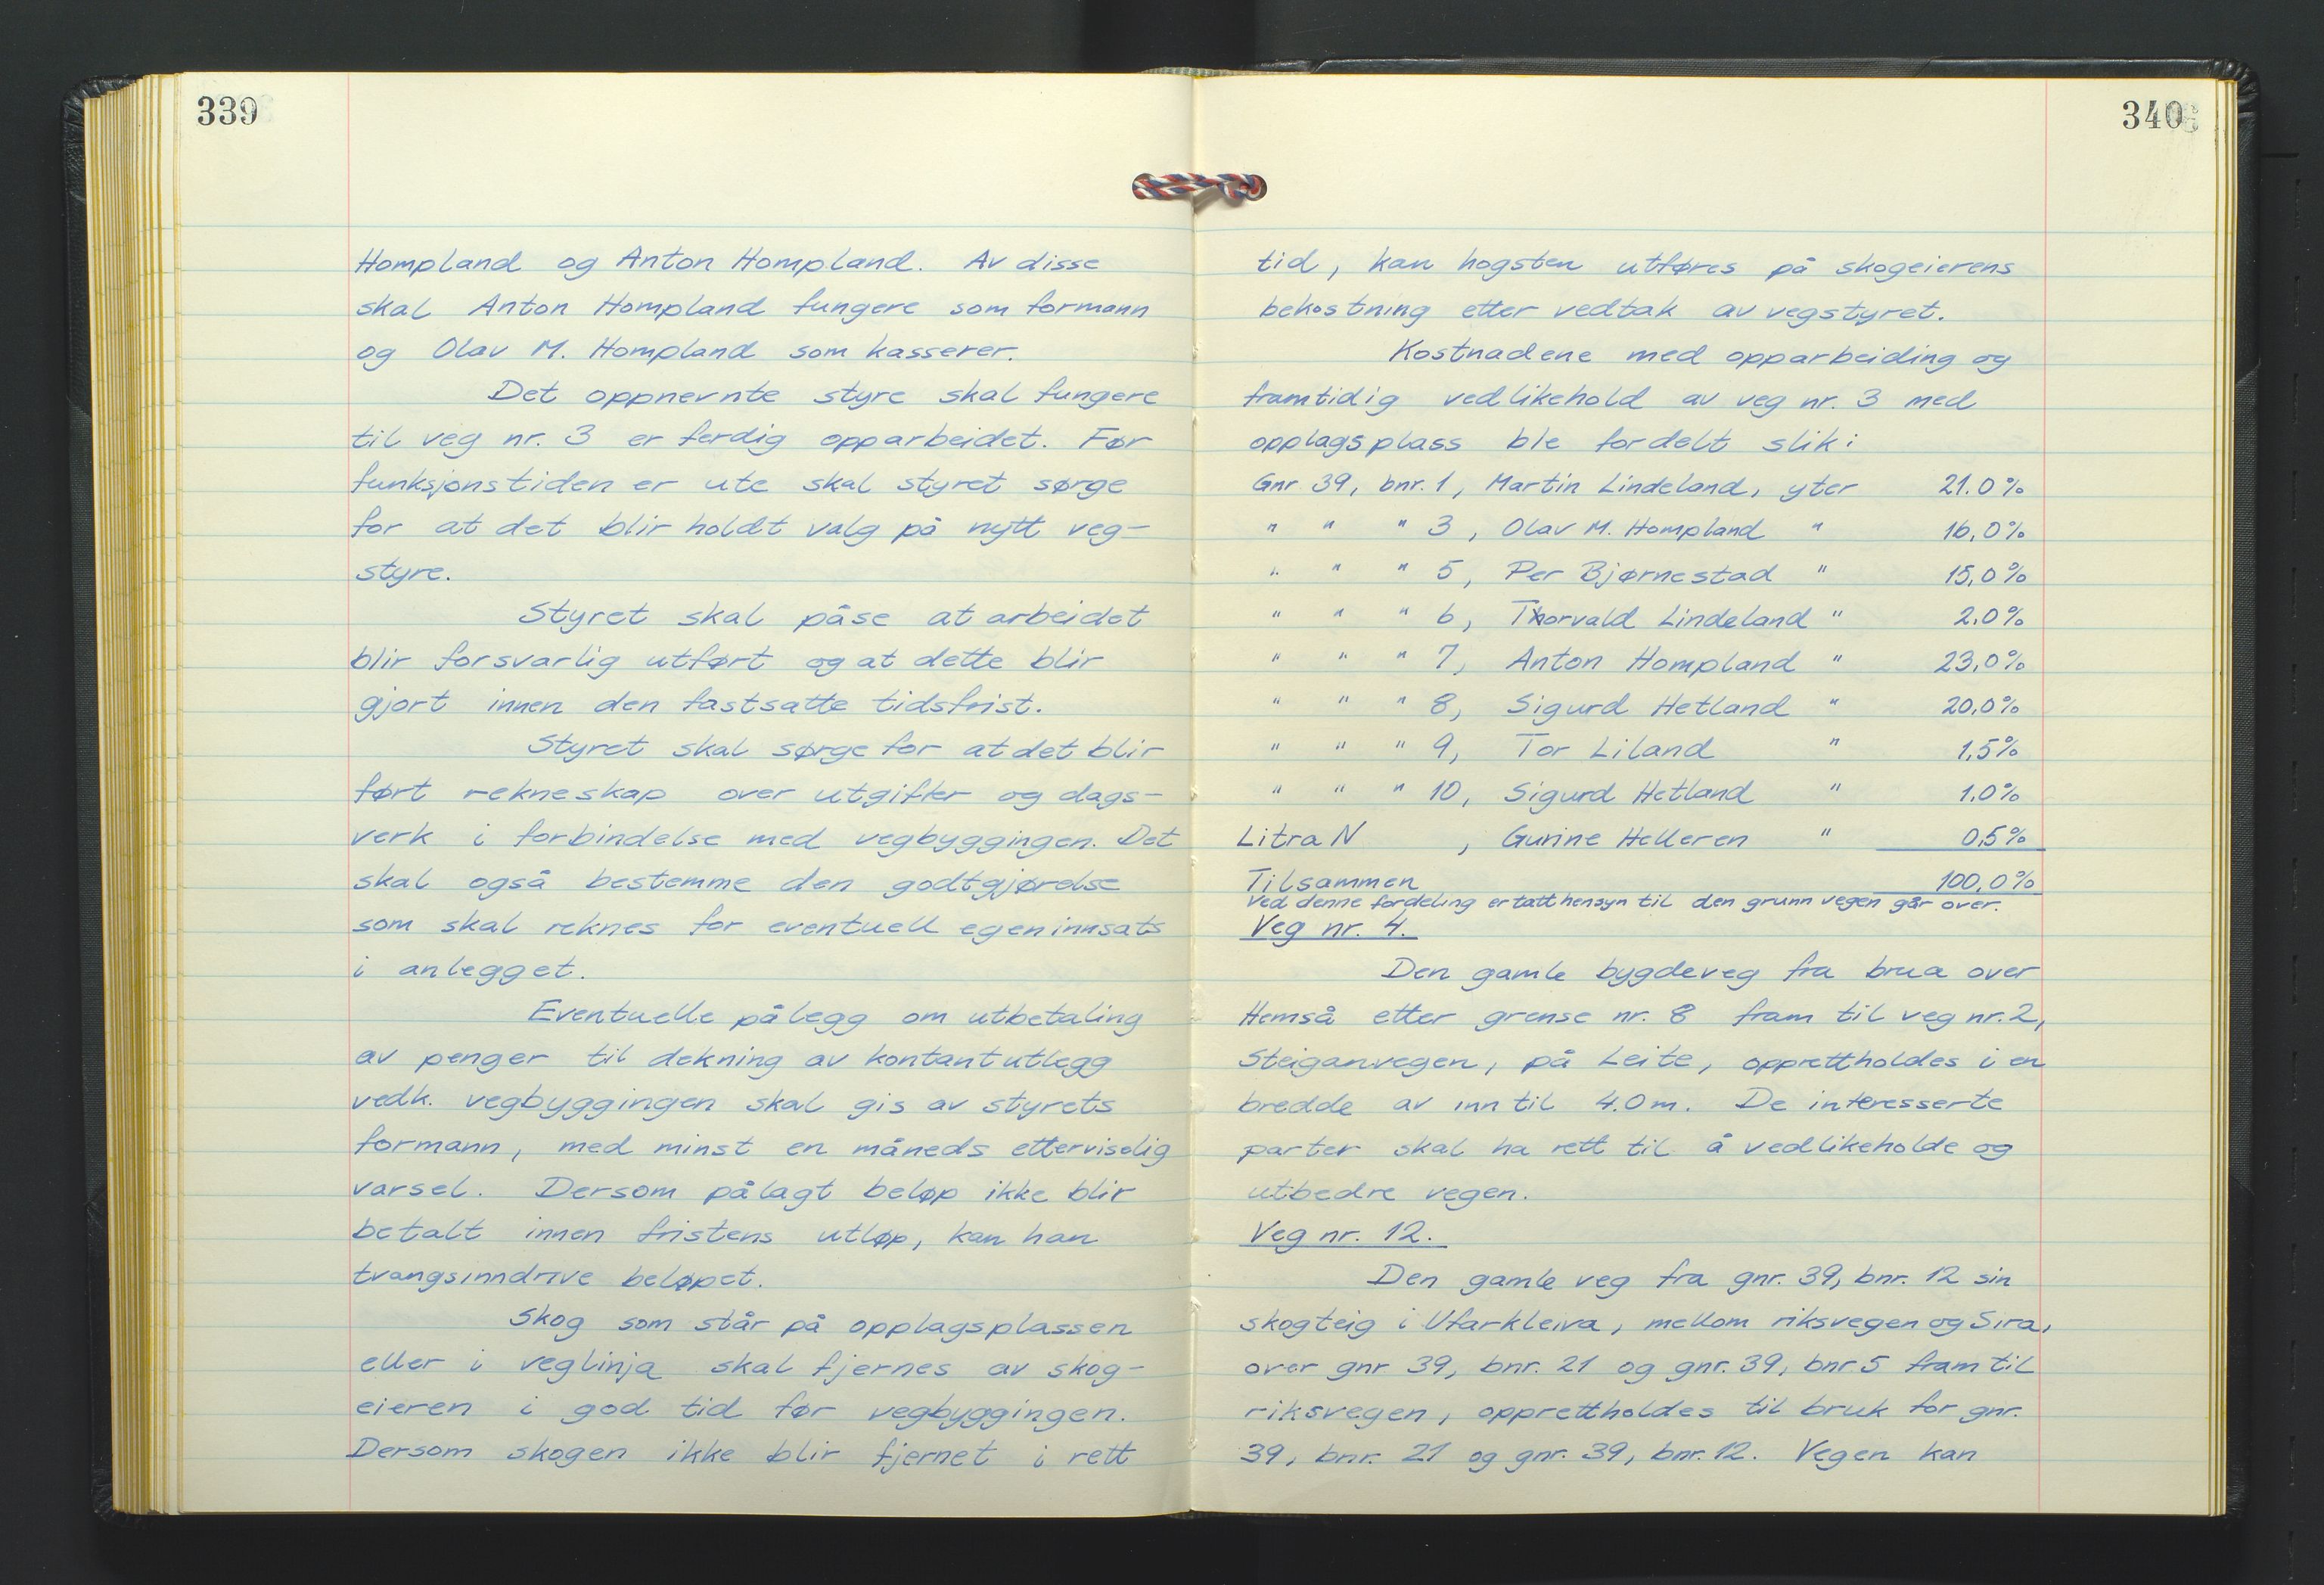 339
Hompland og Anton Hompland. Av disse
skal Anton Hompland fungere som formann
og Olav M. Hompland som kasserer.
Det oppnevnte styre skal fungere
til veg nr. 3 er ferdig opparbeidet. Før
funksjonstiden er ute skal styret sørge
for at det blir holdt valg på nytt veg-
styre.
Styret skal påse at arbeidet
blir forsvarlig utført og at dette blir
gjort innen den fastsatte tidsfrist.
Styret skal sørge for at det blir
ført rekneskap over utgifter og dags-
verk i forbindelse med vegbyggingen. Det
skal også bestemme den godtgjørelse
som skal reknes for eventuell egeninnsats
i anlegget.
Eventuelle pålegg om utbetaling
av penger til dekning av kontantutlegg
vedk. vegbyggingen skal gis av styrets
formann, med minst en måneds etterviselig
varsel. Dersom pålagt beløp ikke blir
betalt innen fristens utløp, kan han
tvangsinndrive beløpet.
Skog som står på opplagsplassen
eller i veglinja skal fjernes av skog-
eieren i god tid før vegbyggingen.
Dersom skogen ikke blir fjernet i rett
340
tid, kan hogsten utføres på skogeierens
bekostning etter vedtak av vegstyret.
Kostnadene med opparbeiding og
framtidig vedlikehold av veg nr. 3 med
opplagsplass ble fordelt slik:
Gnr 39, bnr. 1, Martin Lindeland, yter 21.0%
" " " 3, Olav M. Hompland " 16,0%
" " " 5, Per Bjørnestad " 15,0%
" " " 6, Thorvald Lindeland " 2,0%
" " " 7, Anton Hompland " 23,0%
" " " 8, Sigurd Hetland " 20,0%
" " " 9, Tor Liland " 1,5%
" " " 10, Sigurd Hetland " 1,0%
Litra N , Gurine Helleren " 0,5%
Tilsammen 100,0%
Ved denne fordeling er tatt hensyn til den grunn vegen går over.
Veg nr. 4.
Den gamle bygdeveg fra brua over
Hemså etter grense nr. 8 fram til veg nr. 2,
Steiganvegen, på Leite, opprettholdes i en
bredde av inntil 4.0 m. De interesserte
parter skal ha rett til å vedlikeholde og
utbedre vegen.
Veg nr. 12.
Den gamle veg fra gnr. 39, bnr. 12 sin
skogteig i Ufarkleiva, mellom riksvegen og Sira,
over gnr 39, bnr. 21 og gnr. 39, bnr 5 fram til
riksvegen, opprettholdes til bruk for gnr.
39, bnr. 21 og gnr. 39, bnr. 12. Vegen kan